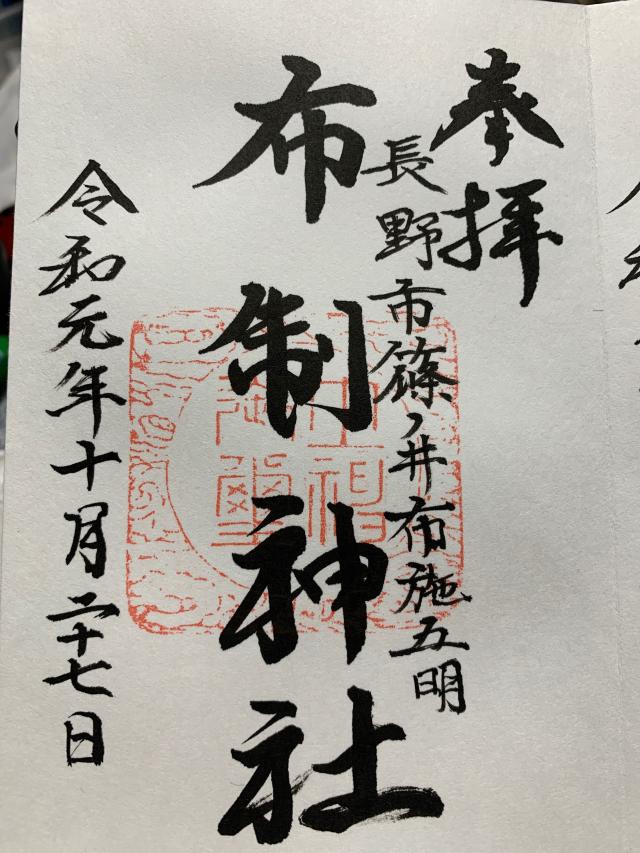 奉拝
長野市篠ノ井布施五明
布制神社
令和元年十月二十七日